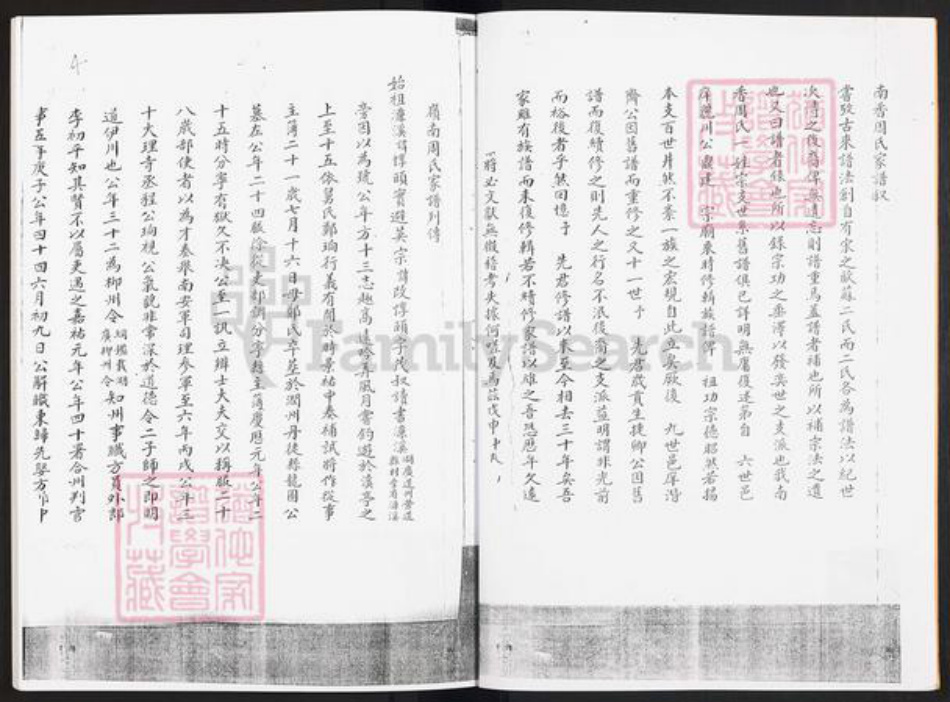 南香周氏家譜叙
嘗攷古來譜法創自有宋之歐蘇二氏而二氏各為譜法以紀世
次傳之後裔俾無遺忘則譜重焉蓋譜者補也所以補宗法之遺
也又曰譜者錄也所以錄宗功之垂澤以發奕世之支派也我南
香周氏一姓宗支世系舊譜俱已詳明無庸復述第自 六世邑
庠 川公 建 宗廟東時修輯族譜俾 祖功宗德昭然若揭
本支百世井然不紊一族之宏規自此立矣厥後 九世邑庠潜
齊公因舊譜而重修之又十一世予 先君歲貢生捷卿公因舊
譜而復續修之則先人之行名不泯後裔之支派益明謂非光前
而裕後者乎然回憶予 先君修譜以來至今相去三十年矣吾
家雖有族譜而未復修輯若不續修家譜以雄之吾恐歷年久遠
將必文獻無徵稽考失據何 及焉茲戊申
嶺南周氏家譜列傳
始祖濂溪諱惇頤實避英宗諱改惇頤字茂叔讀書濂溪湖廣道州營道縣村
旁因以為號公年方十三志趣高遠吟弄風月嘗釣遊於溪亭之
上至十五依舅氏鄭珦行義有聞於時景祐中奏補試將作從事
主簿二十一歲七月十六日母鄭氏卒葬於潤州丹徒縣龍圖公
墓左公年二十四服除從吏部調分寧縣主簿慶曆元年公年二
十五時分寧有獄久不决公至一訊立辨士大夫交以稱服二十
八歲部使者以為才奏舉南安軍司理參軍至六年丙戌公年三
十大理寺丞程公珦視公氣貌非常深於道德令二子師之即明
道伊川也公年三十二為郴州令 知州事職方員外郎
李初平知其賢不以屬吏遇之嘉祐元年公年四十署合州判官
事五年庚子公年四十四六月初九日公解職東歸先墅方作中
FamilySearch